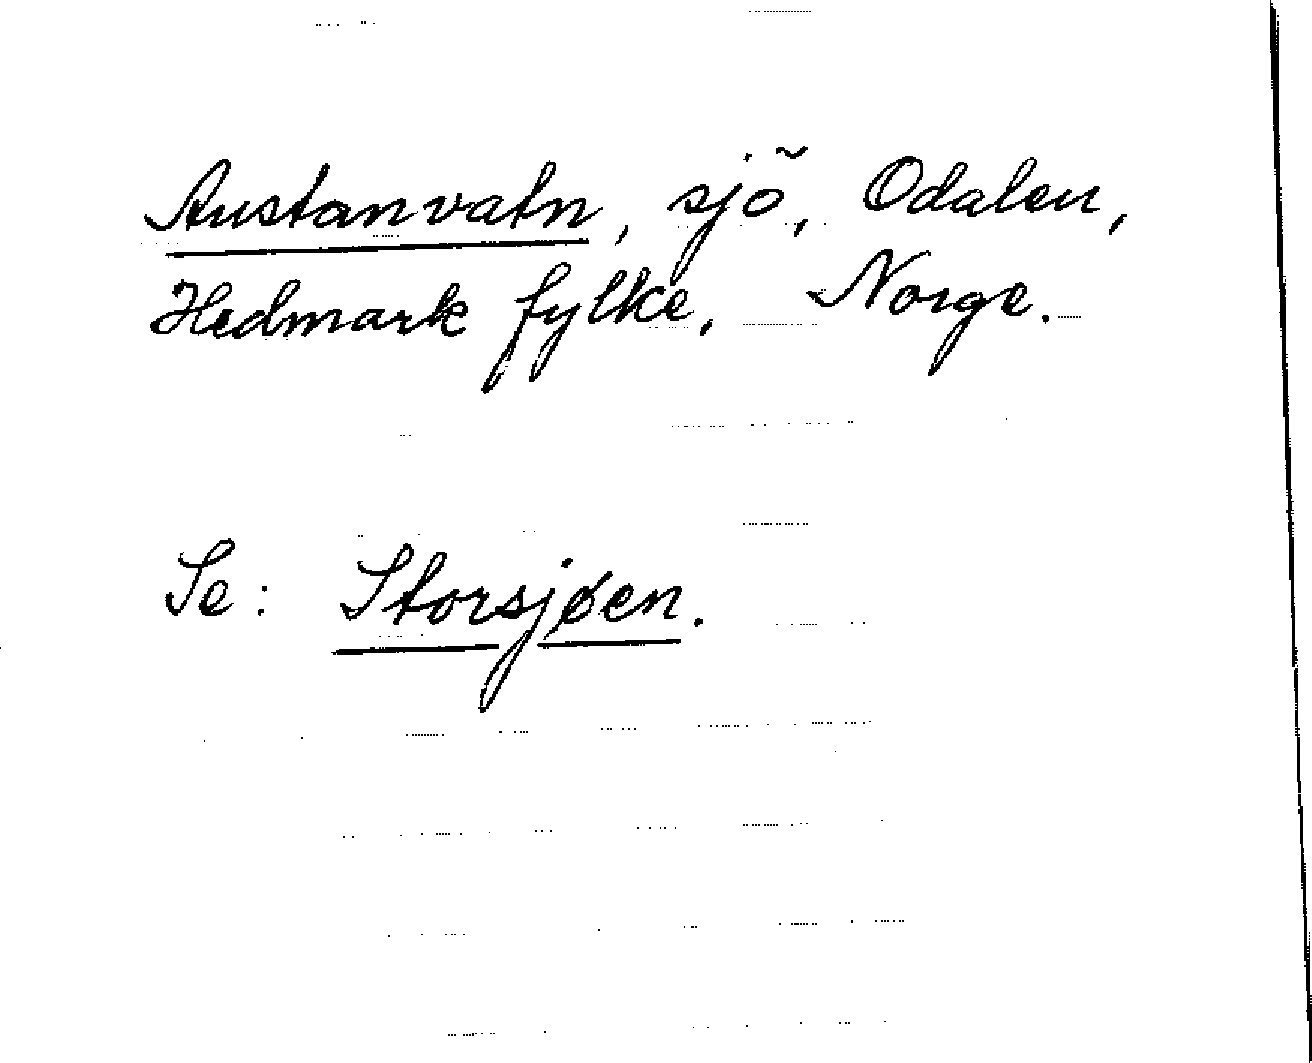 Austanvatn, sjö, Odalen,
Hedmark fylke, Norge.
Se: Storsjøen.